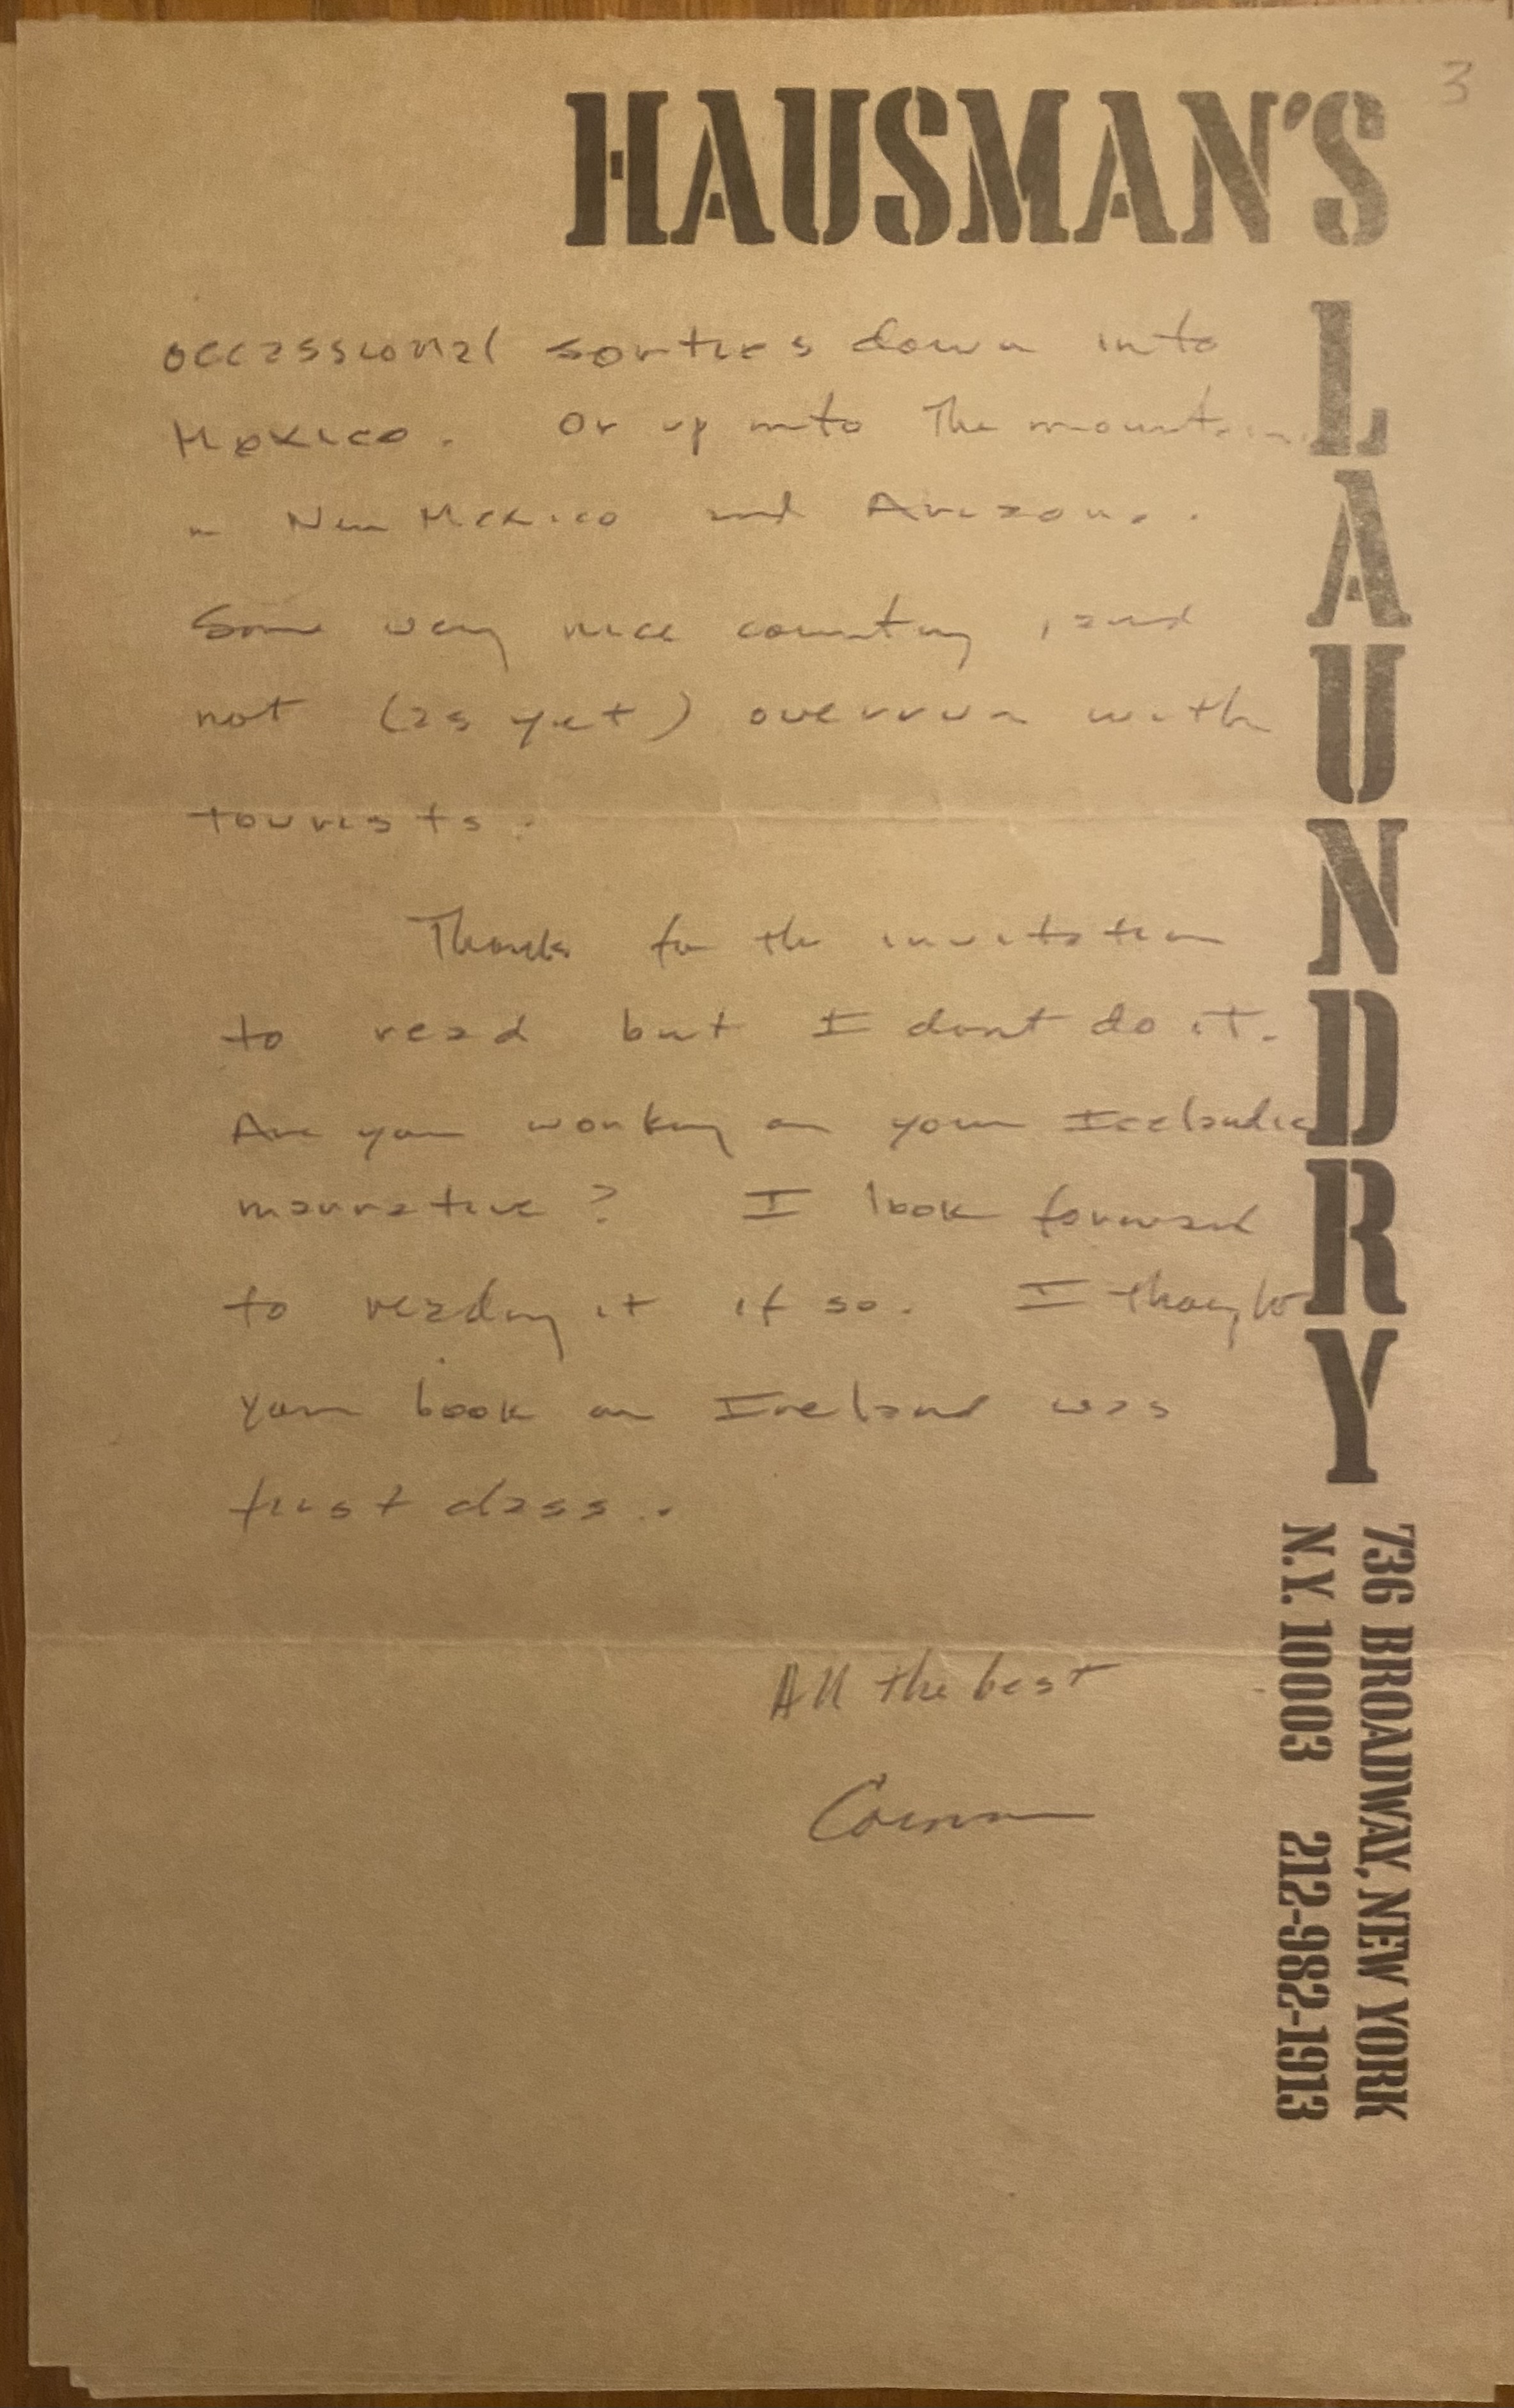 3
HAUSMAN'S
LAUNDRY
736 BROADWAY, NEW YORK
N.Y. 10003 212-982-1913
occassional sorties down into
Mexico. Or up into the mountains
in New Mexico and Arizona.
Some very nice country, and
not (as yet) overrun with
tourists.
Thanks for the invitation
to read but I dont do it.
Are you working on your Icelandic
narrative? I look forward
to reading it if so. I thought
your book on Ireland was
first class.
All the best